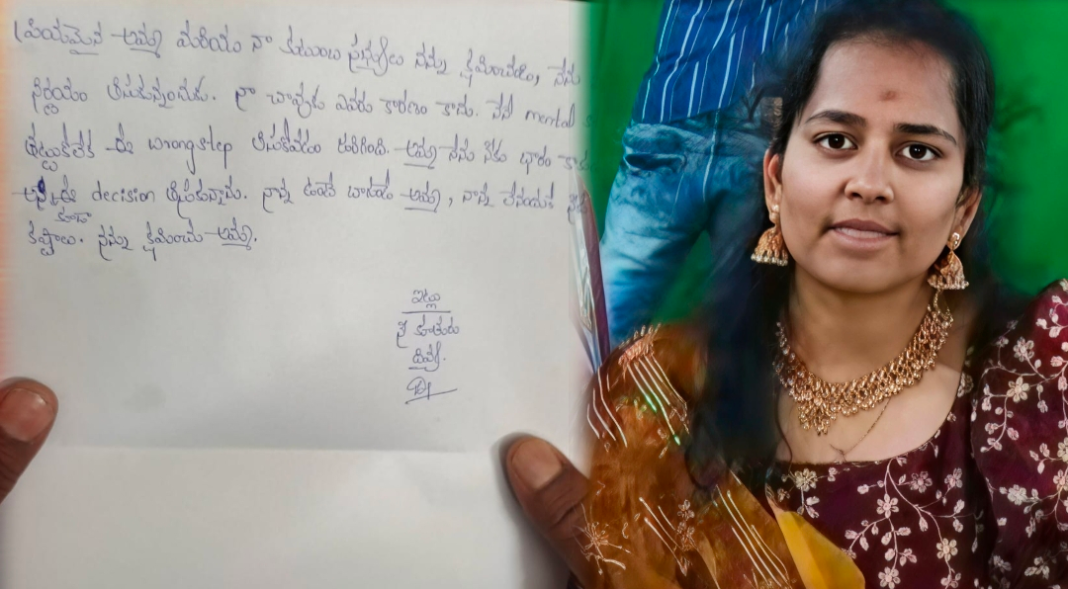 ప్రియమైన అమ్మ మరియు నా కుటుంబ సభ్యులు నన్ను క్షమించండి, నేను
నిర్ణయం తీసుకున్నందుకు. నా చావుకు ఎవరు కారణం కాదు. నేనే mental
తట్టుకోలేక ఈ wrong step తీసుకోవడం జరిగింది. అమ్మ నేను నీకు భారం
ఈ decision తీసుకున్నాను. నాన్న ఉంటే బాగుండు అమ్మ, నాన్న లేనందుకే
కూడా
కష్టాలు. నన్ను క్షమించు అమ్మ.
ఇట్లు
నీ కూతురు
దివ్య.